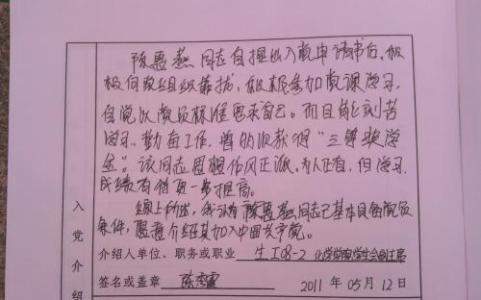 陈惠燕同志自提出入党申请书后，积极
极向党组织靠拢，积极参加党课学习，
自觉以党员标准要求自己。而且能刻苦
学习，勤奋工作，曾收获得"三等奖学
金"。该同志思想作风正派，为人正直，但学习
成绩有待更一步提高。
综上所述，我认为陈惠燕同志已基本具备党员
条件，愿意介绍其加入中国共产党。
入党介绍
介绍人单位、职务或职业 生工08-2 化学学院学生会副主席
签名或盖章 陈
2011 年 05 月 12 日